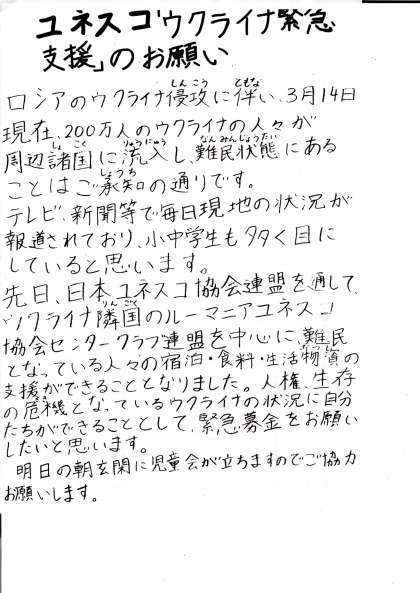 ユネスコ「ウクライナ緊急
支援」のお願い
ロシアのウクライナ侵攻に伴い、3月14日
現在、200万人のウクライナの人々が
周辺諸国に流入し、難民状態にある
ことはご承知の通りです。
テレビ、新聞等で毎日現地の状況が
報道されており、小中学生も多く目に
していると思います。
先日、日本ユネスコ協会連盟を通して、
ウクライナ隣国のルーマニアユネスコ
協会センタークラブ連盟を中心に、難民
となっている人々の宿泊・食料・生活物資の
支援ができることとなりました。人権、生存
の危機となっているウクライナの状況に自分
たちができることとして、緊急募金をお願い
したいと思います。
明日の朝玄関に児童会が立ちますのでご協力
お願いします。